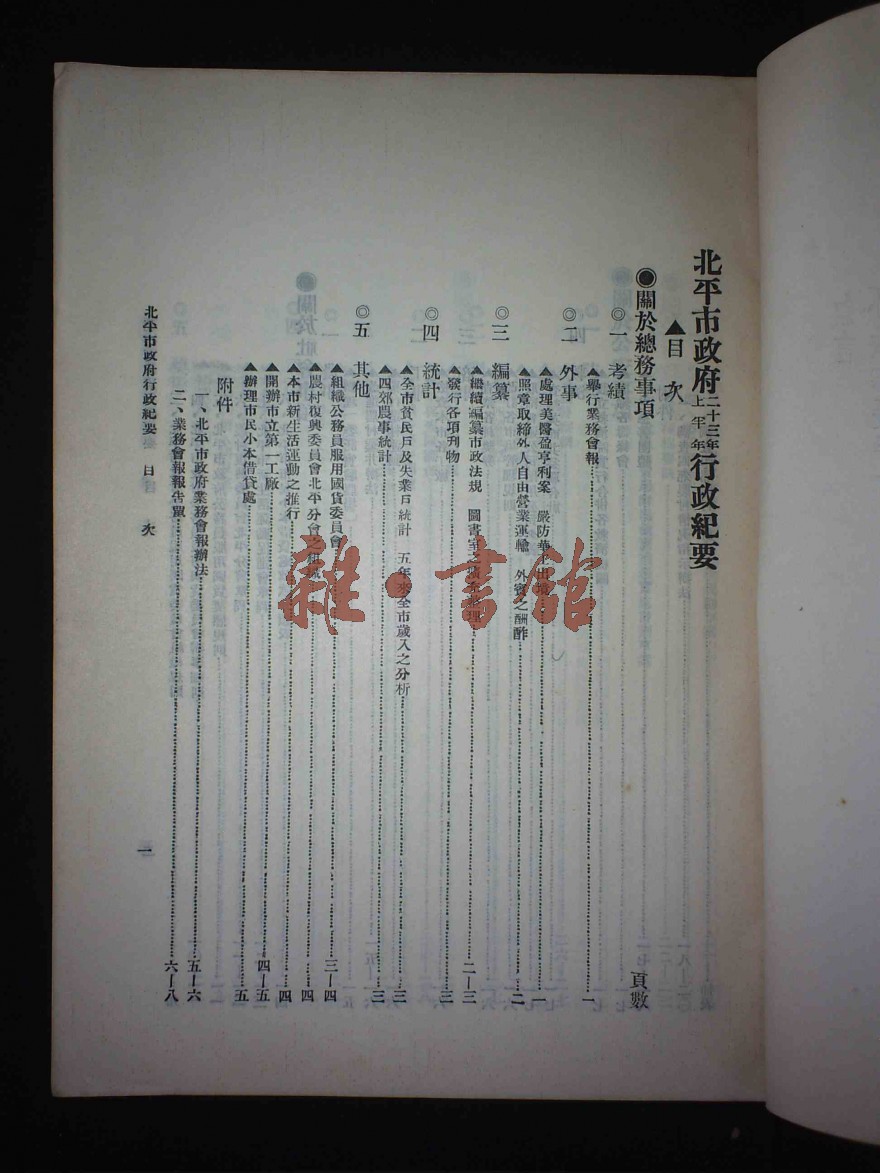 北平市政府二十三年上半年行政紀要
▲目次
◉關於總務事項 頁數
◎一 考績
▲舉行業務會報 一
◎二 外事
▲處理美醫盈亨利案 嚴防華工出 一
▲照章取締外人自由營業運輸 外賓之酬酢 二
◎三 編纂
▲繼續編纂市政法規 圖書室之 整理 二—三
▲發行各項刊物 三
◎四 統計
▲全市貧民戶及失業口統計 五年來全市歲入之分析 三
▲四郊農事統計 三
◎五 其他
▲組織公務員服用國貨委員會 三—四
▲農村復興委員會北平分會之組織 四
▲本市新生活運動之推行 四
▲開辦市立第一工廠 四—五
▲辦理市民小本借貸處 五
附件
一、北平市政府業務會報辦法 五—六
二、業務會報報告單 六—八
北平市政府行政紀要 目次 一
雜·書館